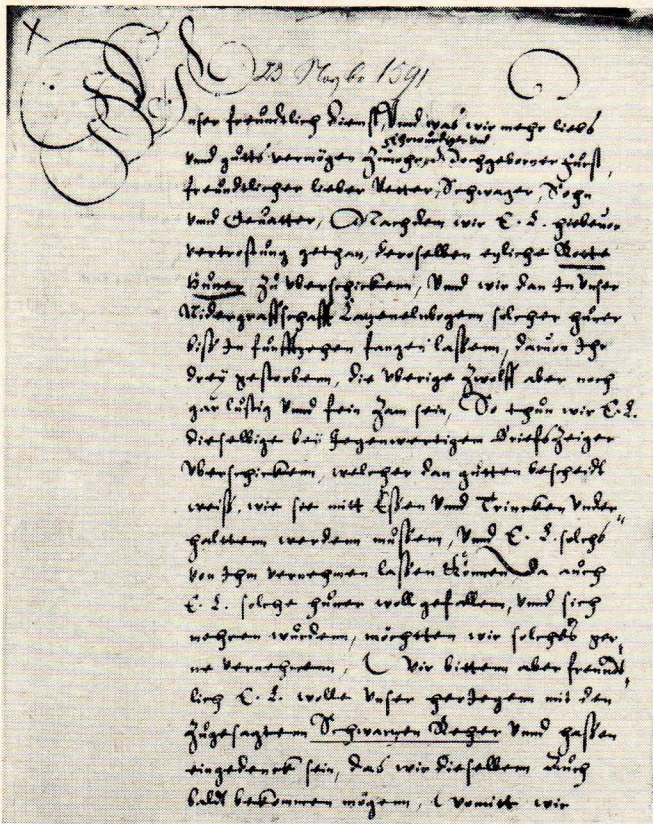 23 Novbr 1591
Unser freundtlich dienst, Vnnd was wir mehr liebs
vnnd gutts vermögen Zuuor, Hochgeborner Furst,
freundtlicher lieber Vetter, Schwager, Sohn
vnnd Geuatter, Nachdem wir E. L. hiebeuor
vertröstung gethan, deroselben etzliche Rotte
Huner Zu Vberschickenn, Vnnd wir dan In Vnser
Nidergraffschafft Catzenelnbogenn solcher huner
biss In funffzehen fangen lassenn, dauon Ihr
drey gestorbenn, die vberige Zwolff aber noch
gar lustig vnnd fein Zam sein, So thun wir E. L.
dieselbige beij gegenwertigen brieffs Zeiger
Vberschickenn, welcher dan gutten bescheidt
weiss, wie sie mitt Essen vnnd Trincken vnder-
halttenn werdenn mussenn, Vnnd E. L. solchs
von Ihm vernehmen lassen können, Da auch
E. L. solche huner woll gefallenn, vnnd sich
mehren wurdenn, möchtten wir solches ger-
ne vernehmenn, Wir bittenn aber freundt-
lich E. L. wolle vnser hertzegenn mit den
Zugesagtenn Schwartzen Reher vnnd hassen
eingedenck sein, das wir dieselbenn Auch
baldt bekommen mögenn, Womitt wir